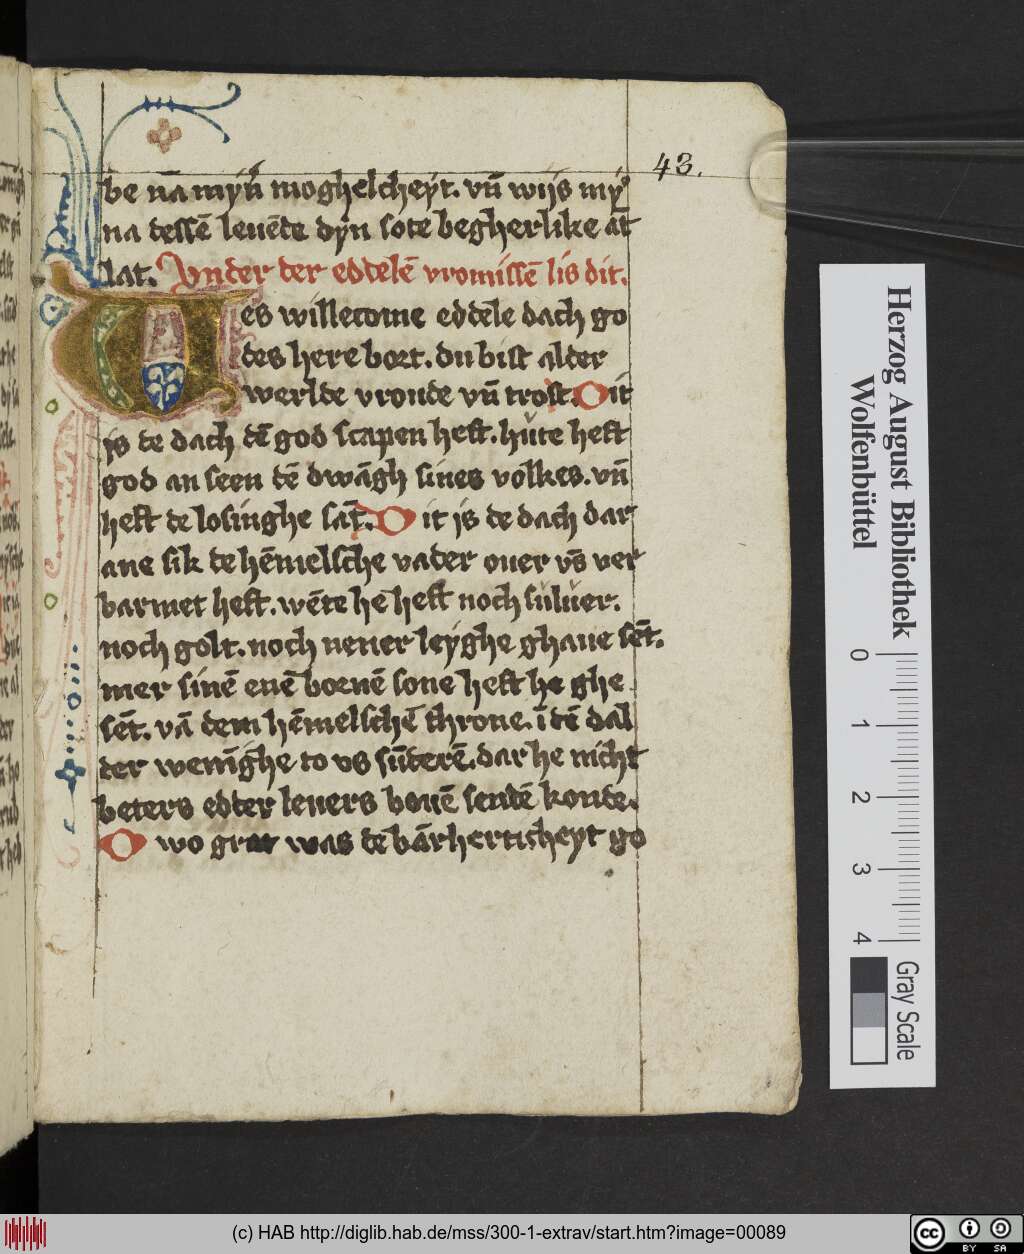 43.
be nā mijn̄ moghelcheyt. vn̄ wijs mȳ
na dessē leuēde dyn sote begherlike āt
lat. Vnder der eddelē vromissē lis dit.
Wes willecome eddele dach go
des here bort. du bist alder
werlde vronde vn̄ trost. O it
is de dach dē god scapen heft. hute heft
god an seen dē dwāgh sines volkes. vn̄
heft de losinghe sāt. O it is de dach dar
ane sik de hēmelsche vader ouer vs̄ ver
barmet heft. wēte he heft noch suluer.
noch golt. noch nener leyghe ghaue sēt.
mer sinē enē bornē sone heft he ghe
sēt. vā dem hēmelschē throne. ī dit dal
der wenīghe to vs sūderē. dar he nicht
beters edder leuers bouē sendē konde.
O wo grot was de bārherticheyt go
Herzog August Bibliothek
Wolfenbüttel
0 1 2 3 4
Gray Scale
(c) HAB http://diglib.hab.de/mss/300-1-extrav/start.htm?image=00089
cc BY SA